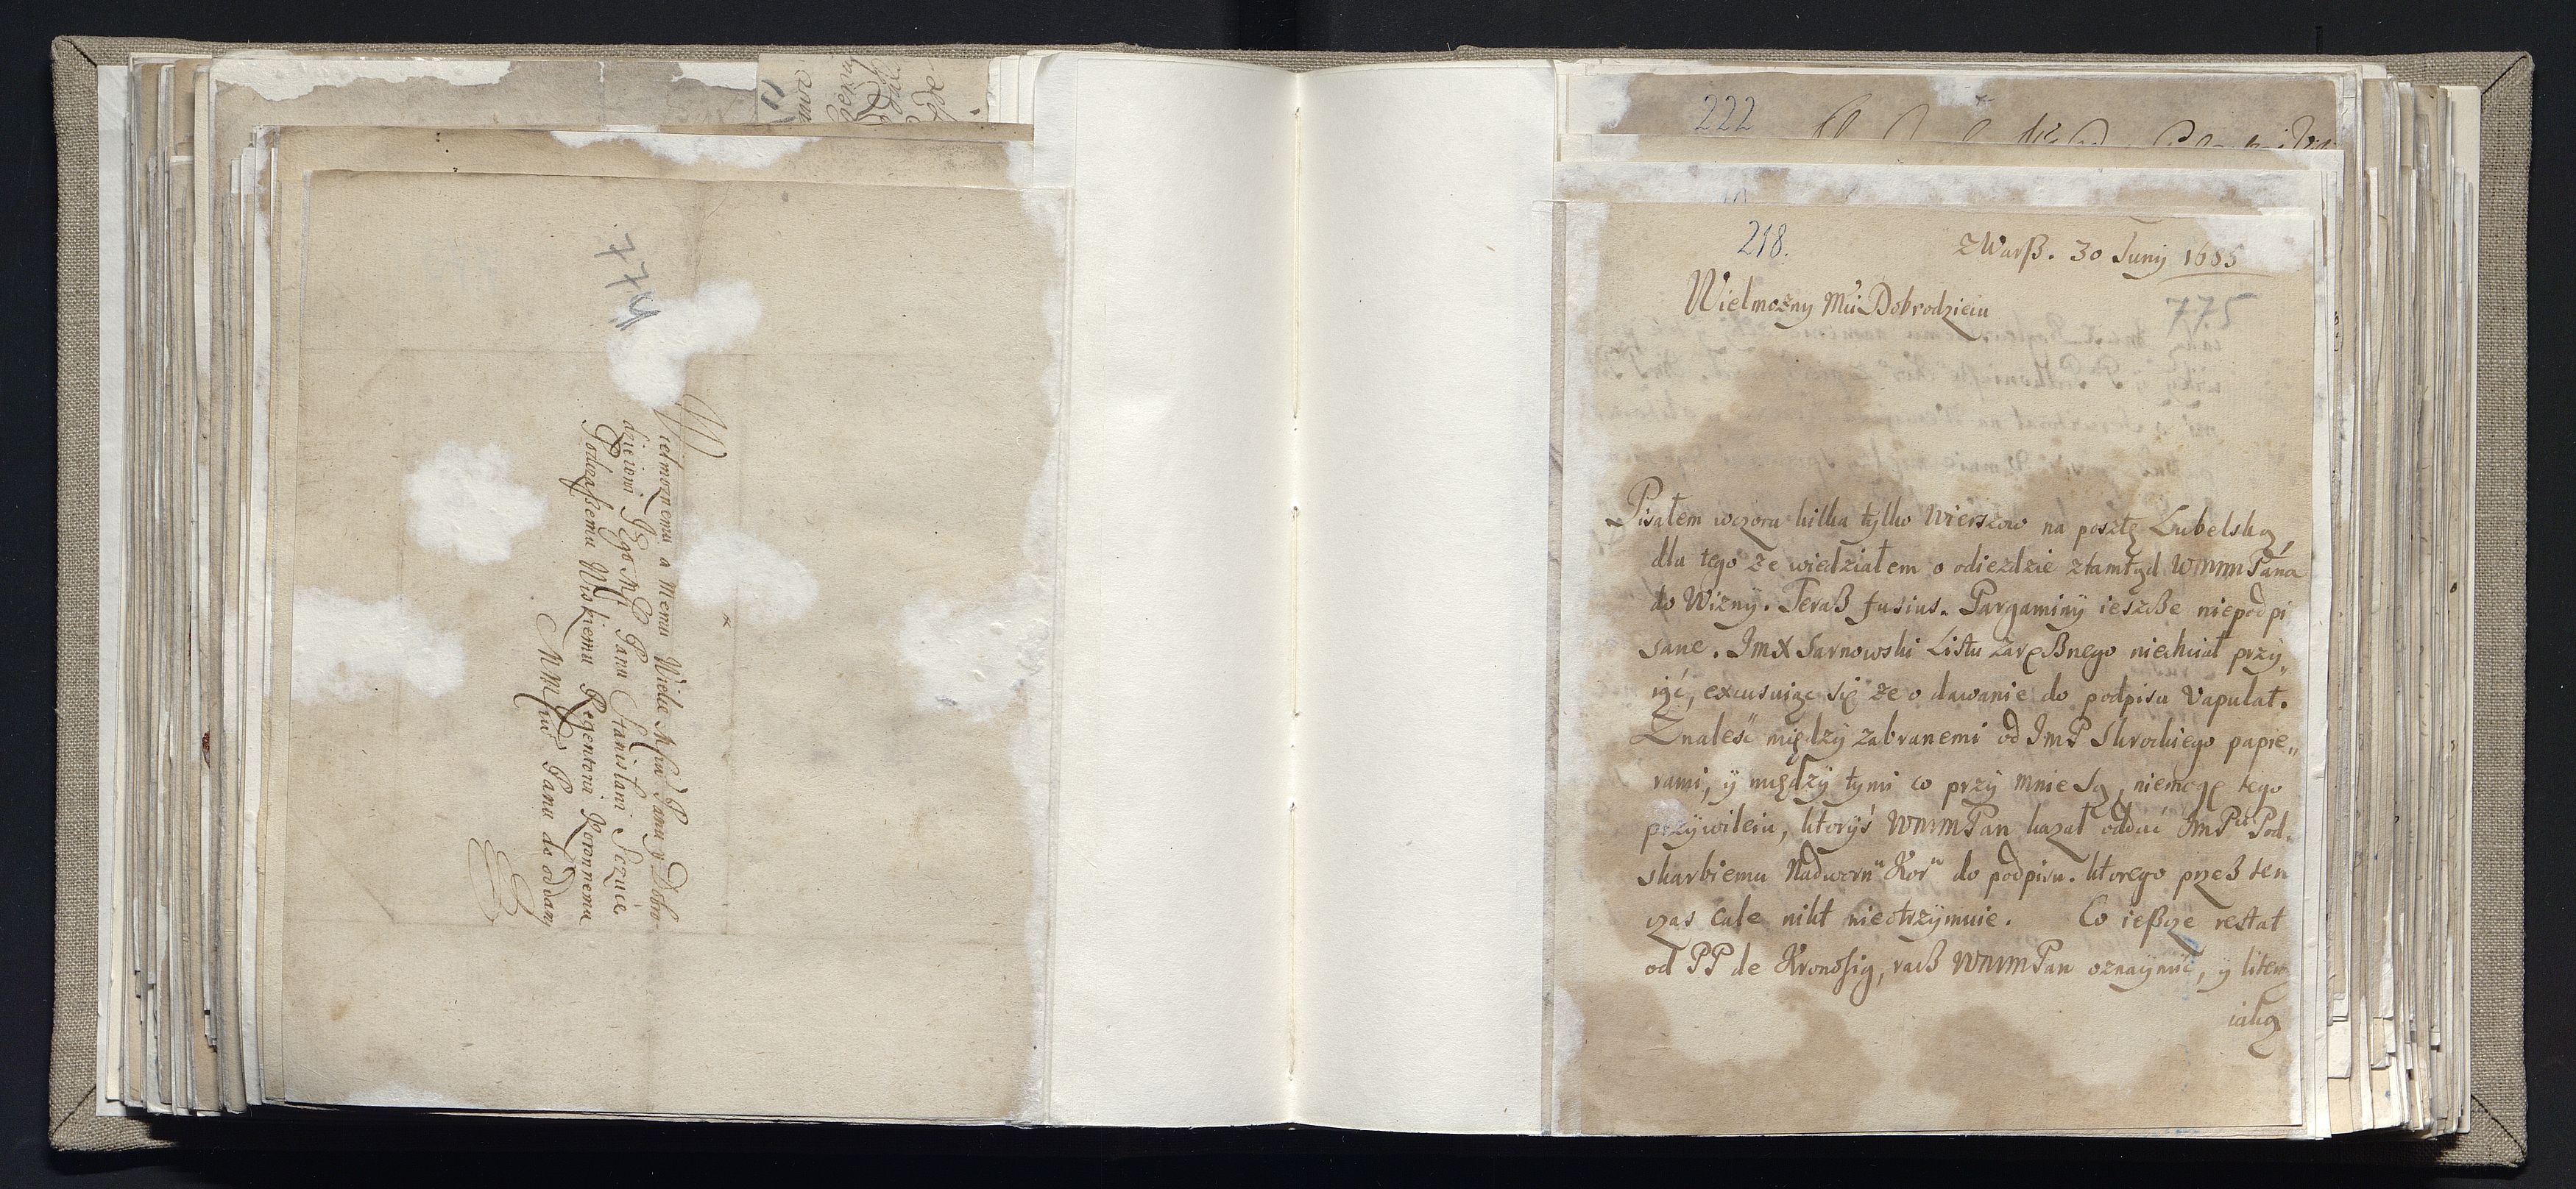 774
Wielmoznemu a Memu Wielce Mściu Panu y Dobro-
dzieiowi Jego Mści Panu Stanisławi Szczuce
Podczaßemu Wiskiemu Regentowi Koronnemu
MMściu Panu do oddany
222
218.
z Warß. 30 Juny 1685
775
Wielmożny Mśći Dobrodzieiu
Pisałem wczora kilka tylko wierszow na posztę Lubelską,
dla tego że wiedziałem o odiezdzie ztamtąd WMMMPana
do Wizny. Teraß fusius. Pargaminÿ ieszcße niepodpi
sane. JmX Sarnowski Listu zaręßnego niechciał przy„
iąć, excusuiąc się że o dawanie do podpisu vapulat.
Znaleść między zabranemi od JmP Skrockiego papie„
rami, ÿ między tymi co przy mnie są, niemogę tego
przÿwileiu, ktoryś WMMMPan kazał oddać JmPu Pod„
skarbiemu Nadworn Kor do podpisu. ktorego przeß ten
czas cale nikt nieotrzÿmuie. Co ießcze restat
od PP de Kronosig, racß WMMMPan oznaÿmić, y
iaką